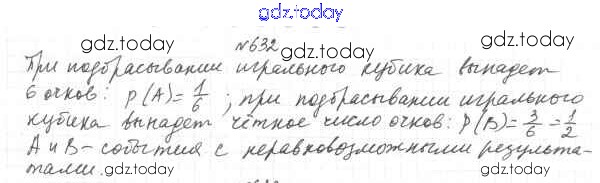 gdz.today
№632
gdz.today gdz.today
При подбрасывании игрального кубика выпадет
6 очков: P(A)=1/6; при подбрасывании игрального
gdz.today
кубика выпадет чётное число очков: P(B)=3/6=1/2
А и В - события с неравновозможными результа-
тами.
gdz.today gdz.today